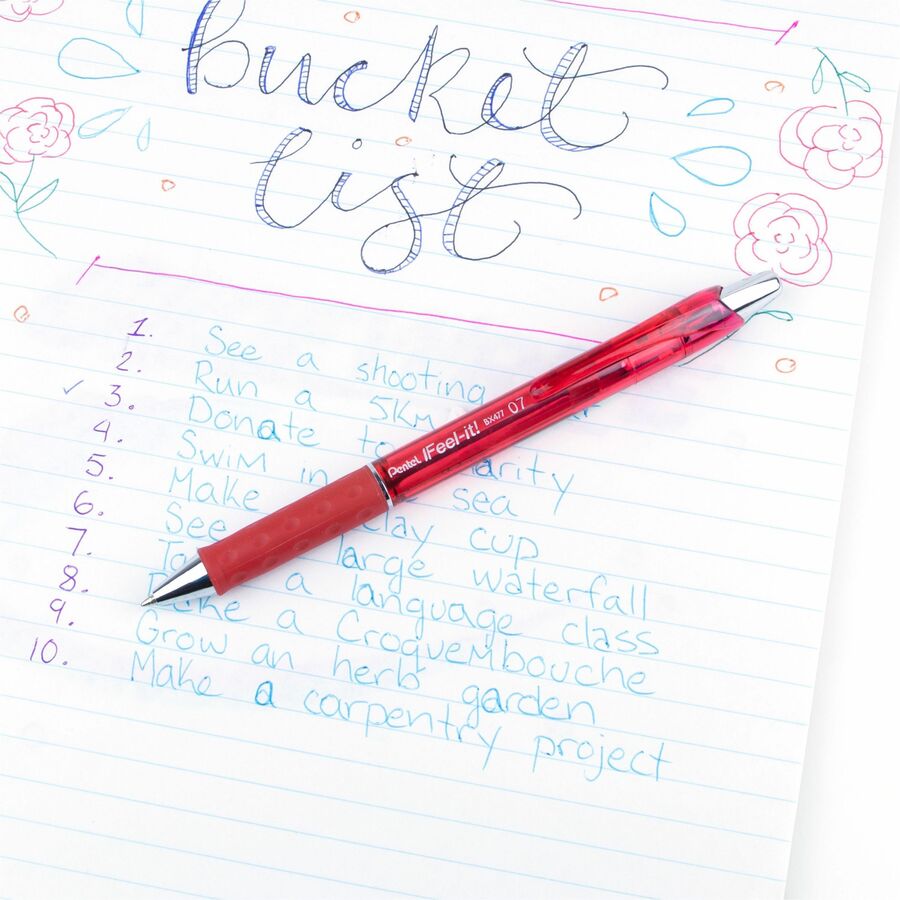 bucket
list
1. See a shooting star
2. Run a 5Km
✓ 3. Donate to charity
4. Swim in the sea
5. Make a clay cup
6. See a large waterfall
7. Take a language class
8. Bake a Croquembouche
9. Grow an herb garden
10. Make a carpentry project
Pentel Feel-it! BX477 07